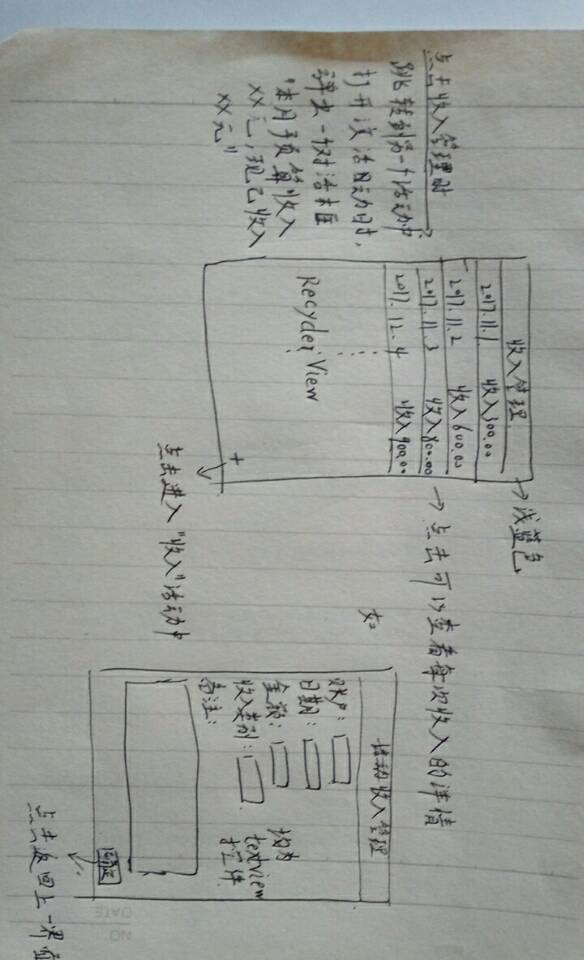 点击收入管理时
跳转到另一个活动中
打开该活动时，
弹出一个对话框
"本月预算收入
XX元，现已收入
XX元"
收入管理
2017.11.1 收入500.00
2017.11.2 收入600.00
2017.11.3 收入800.00
2017.12.4 收入900.00
RecyclerView
+
→浅蓝色
→点击可以查看每次收入的详情
点击进入"收入"活动中
收入管理
账户：
日期：
金额：
收入类别：
备注：
均为
textview
控件
点击返回上一界面
DATE
NO